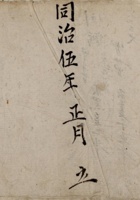 同治伍年正月立